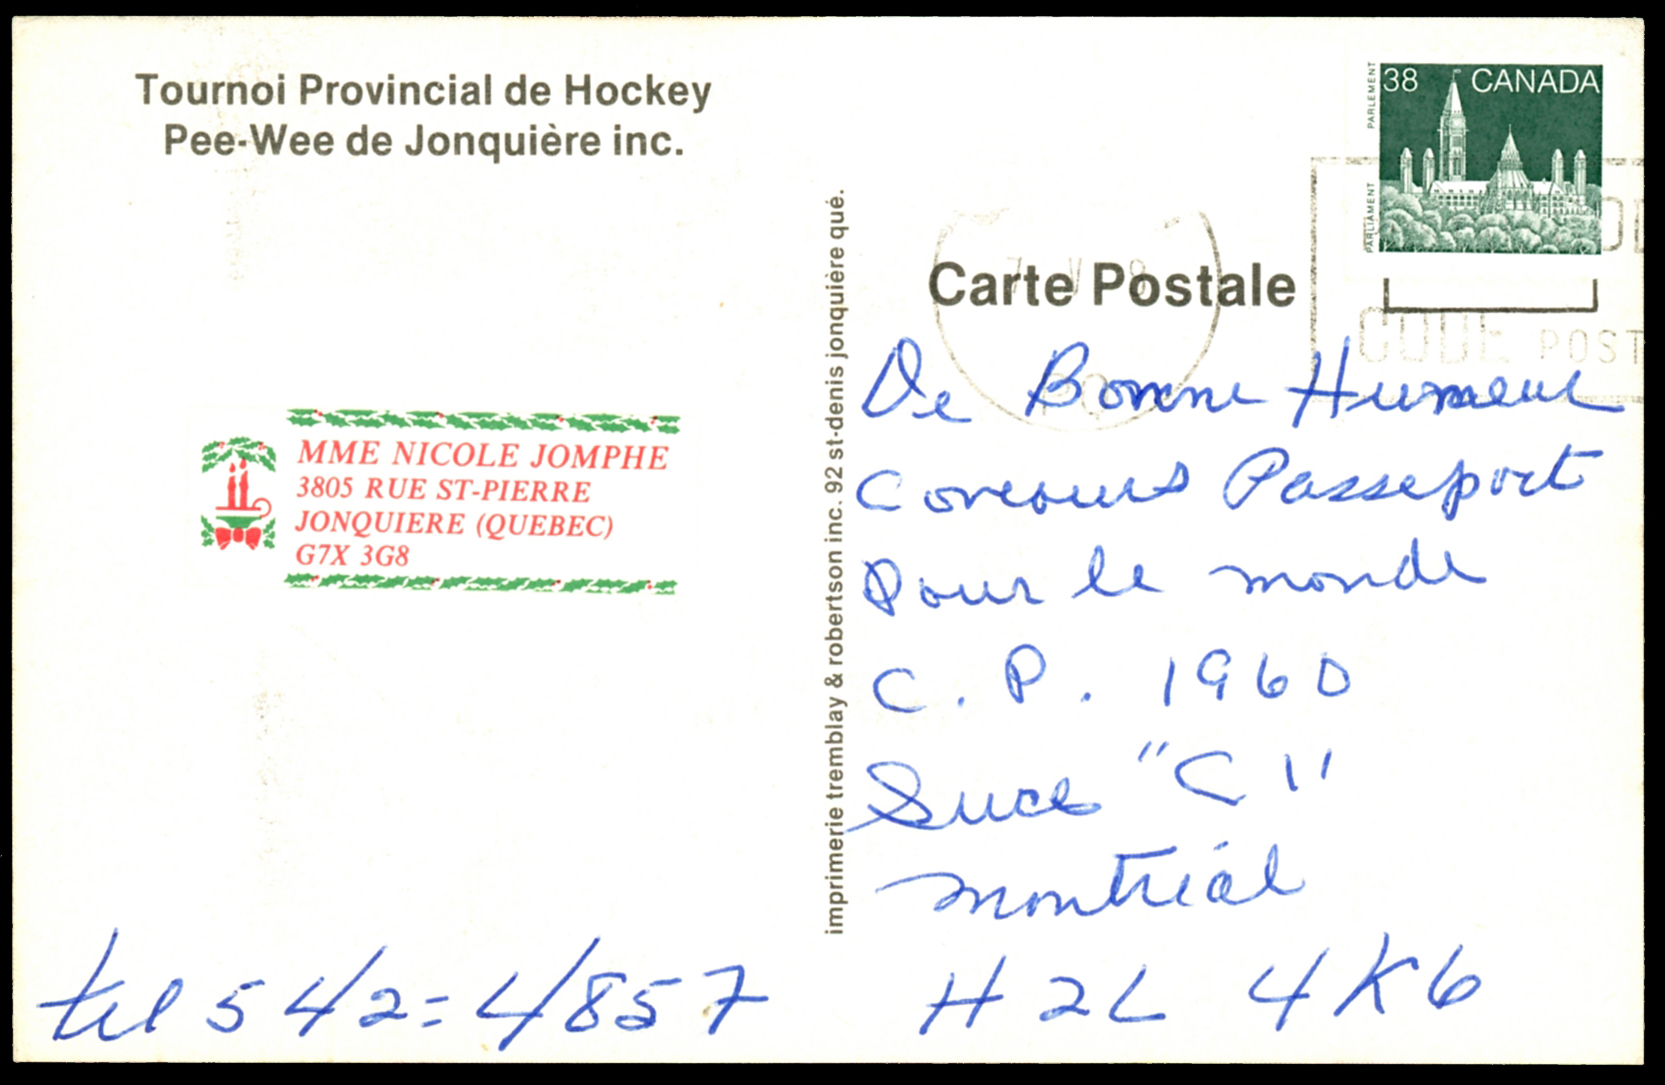 Tournoi Provincial de Hockey
Pee-Wee de Jonquière inc.
MME NICOLE JOMPHE
3805 RUE ST-PIERRE
JONQUIERE (QUEBEC)
G7X 3G8
tel 542=4857
imprimerie tremblay & robertson inc. 92 st-denis jonquière qué.
38 CANADA
PARLIAMENT PARLEMENT
CODE POST
Carte Postale
De Bonne Humeur
Concours Passeport
Pour le monde
C. P. 1960
Succ "C"
Montréal
H2L 4K6